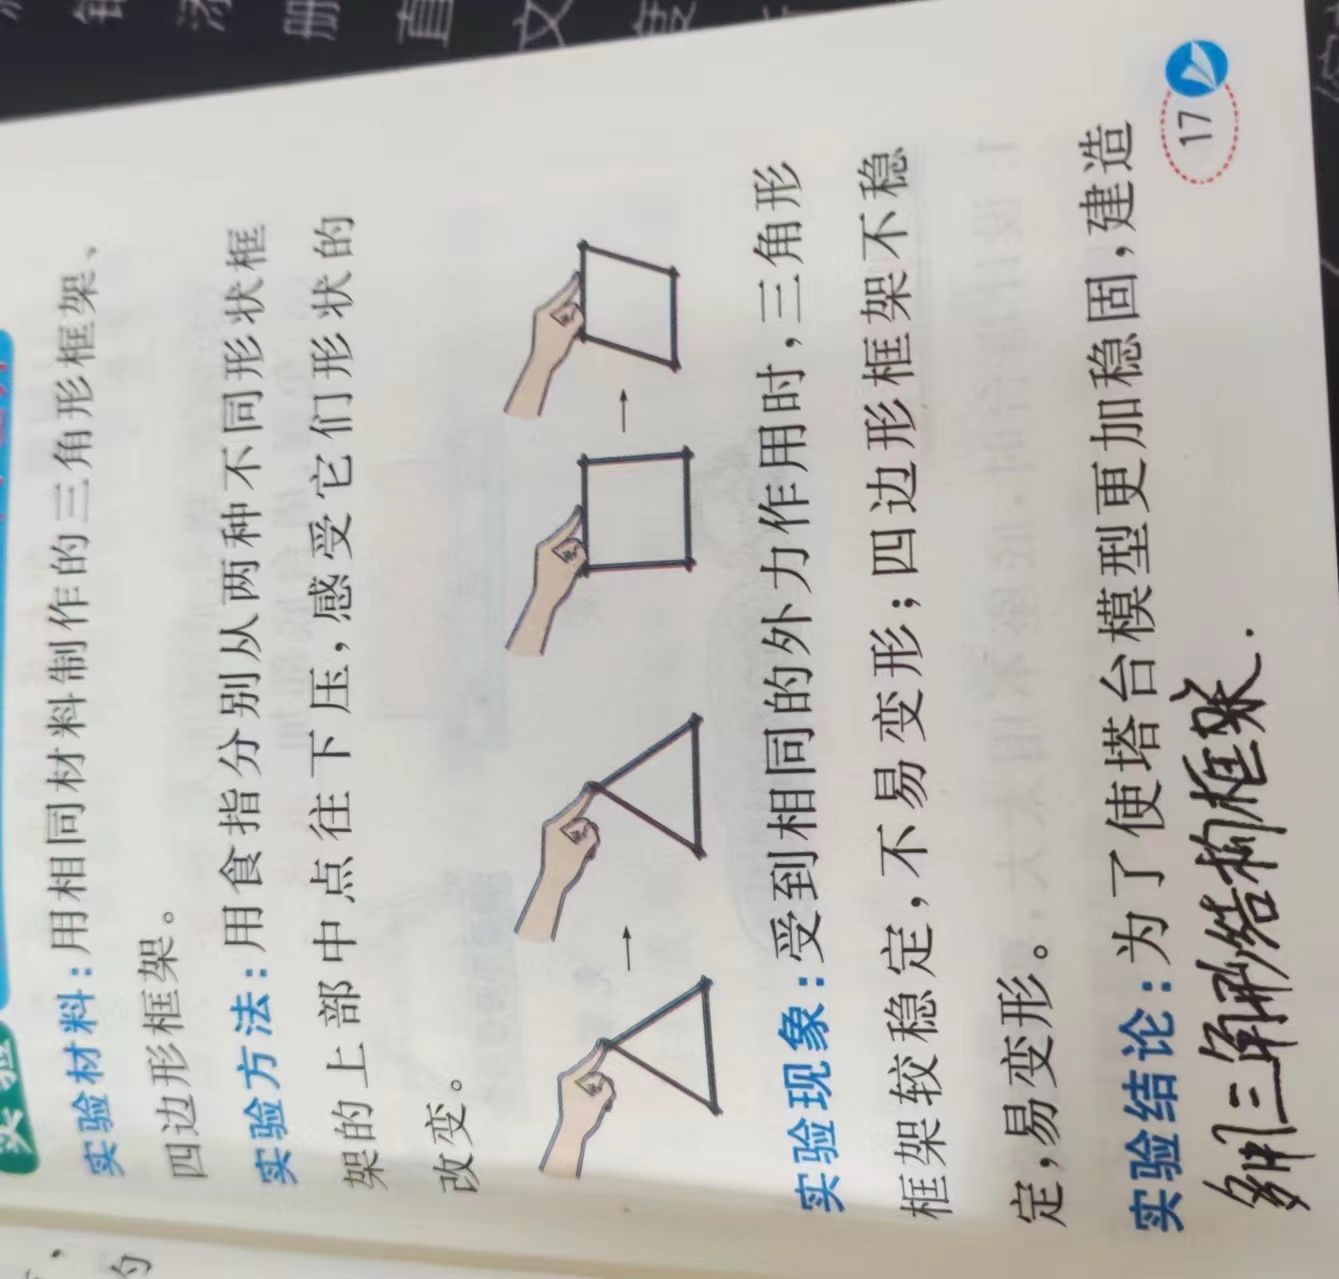 实验材料：用相同材料制作的三角形框架、
四边形框架。
实验方法：用食指分别从两种不同形状框
架的上部中点往下压，感受它们形状的
改变。
实验现象：受到相同的外力作用时，三角形
框架较稳定，不易变形；四边形框架不稳
定，易变形。
实验结论：为了使塔台模型更加稳固，建造
多用三角形结构框架.
17